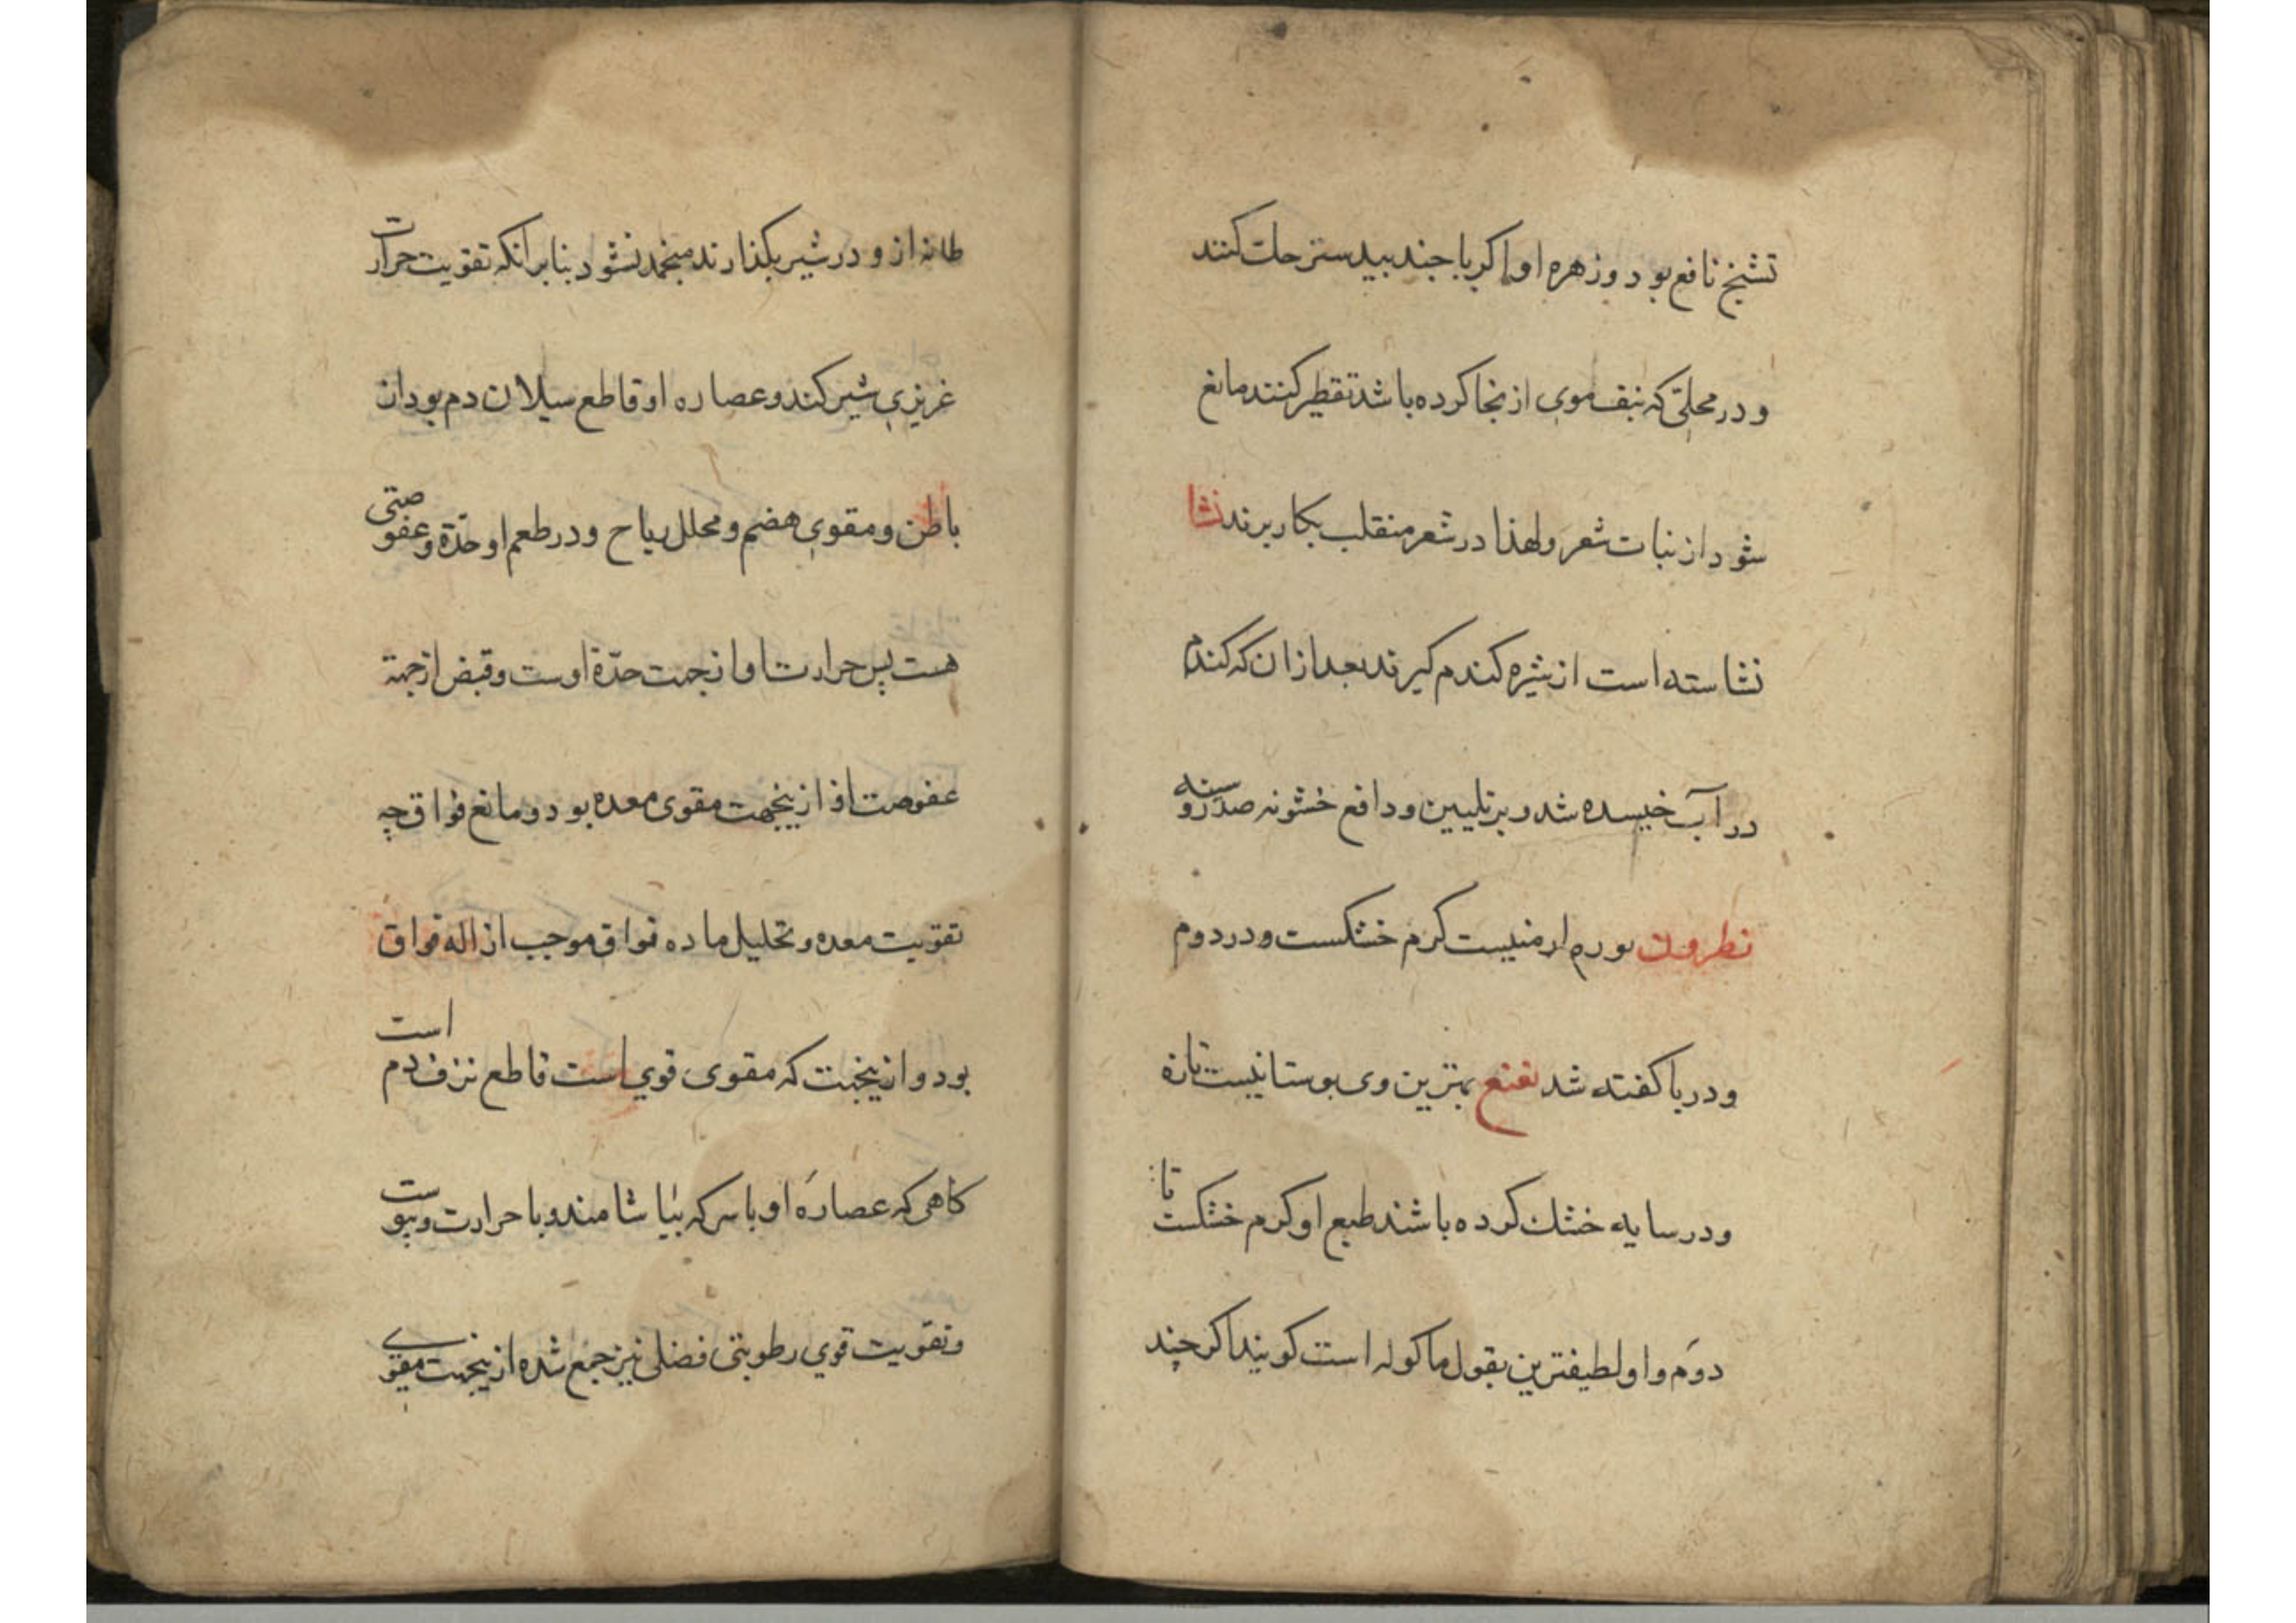 تشنج نافع بود و زهره او را اکر با جند بیدستر حلت کنند
و در محلّی که نتف موی از نجا کرده باشد تقطیر کنند مانع
شود از نبات شعر ولهذا در شعر منقلب بکار برند نشا
نشاسته است از شیره کندم کیرند بعد از ان که کندم
در آب خیسده شد و بر تلیین و دافع خشونه صدر و سینه
نطرون بوره ارمنیست کرم خشکست و در دوم
و در با کفته شد نعنع بهترین وی بوستانیست تازه
و در سایه خشک کرده باشند طبع او کرم خشکست تا
دوم و او لطیفترین بقول ماکوله است کویند اکر چند
طانه از و در شیر بکذارند منجمد نشود بنابر انکه تقویت حرارت
غریزی شیر کند و عصاره او قاطع سیلان دم بود از
باطن و مقوی هضم و محلل ریاح و در طعم او حدّة و عفوصتی
هست پس حرارت او از جهت حدّة اوست و قبض از جهة
عفوصت او از ینجهت مقوی معده بود و مانع فواق چه
تقویت معده و تحلیل ماده فواق موجب ازاله فواق
بود و از ینجهت که مقوی قوی است قاطع نزف دم است
کاهی که عصارهٔ او با سرکه بیاشامند و با حرارت و یبوست
و تقویت قوی رطوبتی فضلی نیز جمع شده از ینجهت مقوی